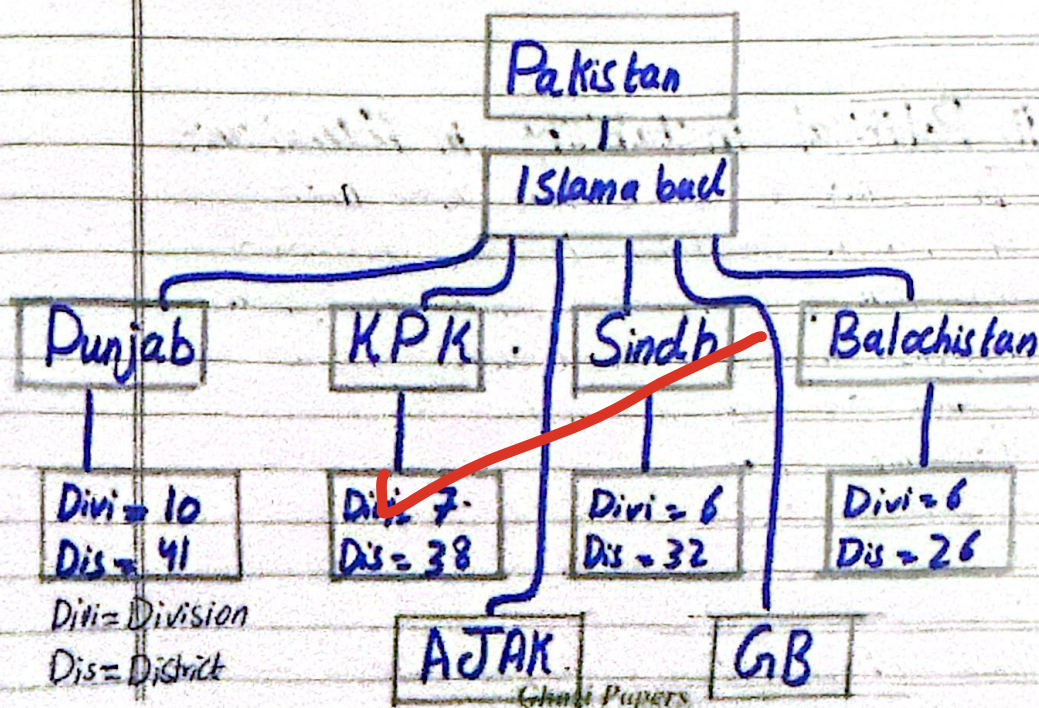 Pakistan
Islama bad
Punjab KPK Sindh Balochistan
Divi = 10 Divi = 7 Divi = 6 Divi = 6
Dis = 41 Dis = 38 Dis = 32 Dis = 26
Divi = Division
Dis = District
AJAK GB
Papers